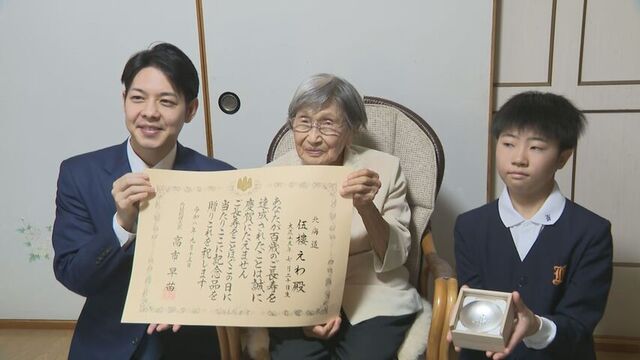 北海道
伍樓えわ殿
大正十五年七月二十四日生
あなたが百歳のご長寿を
達成されたことは誠に
慶賀にたえません
ご長寿をことほぐこの日に
当たりここに記念品を
贈りこれを祝します
令和
内閣総理大臣
高市早苗